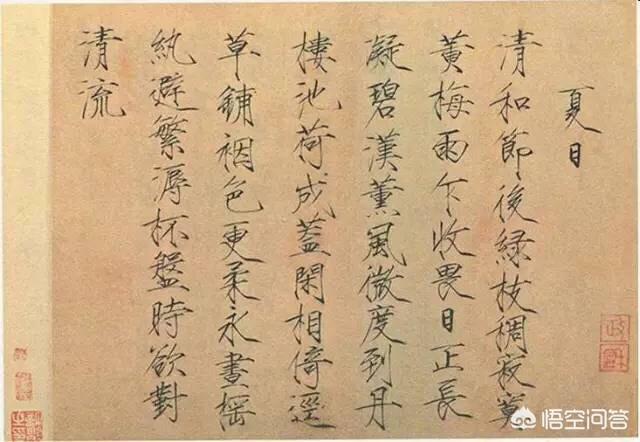 夏日
清和節後綠枝稠寂寞
黃梅雨乍收畏日正長
凝碧漢薰風微度到丹
樓池荷成蓋閑相倚逕
草鋪裀色更柔永晝搖
紈避繁溽杯盤時欲對
清流
悟空问答